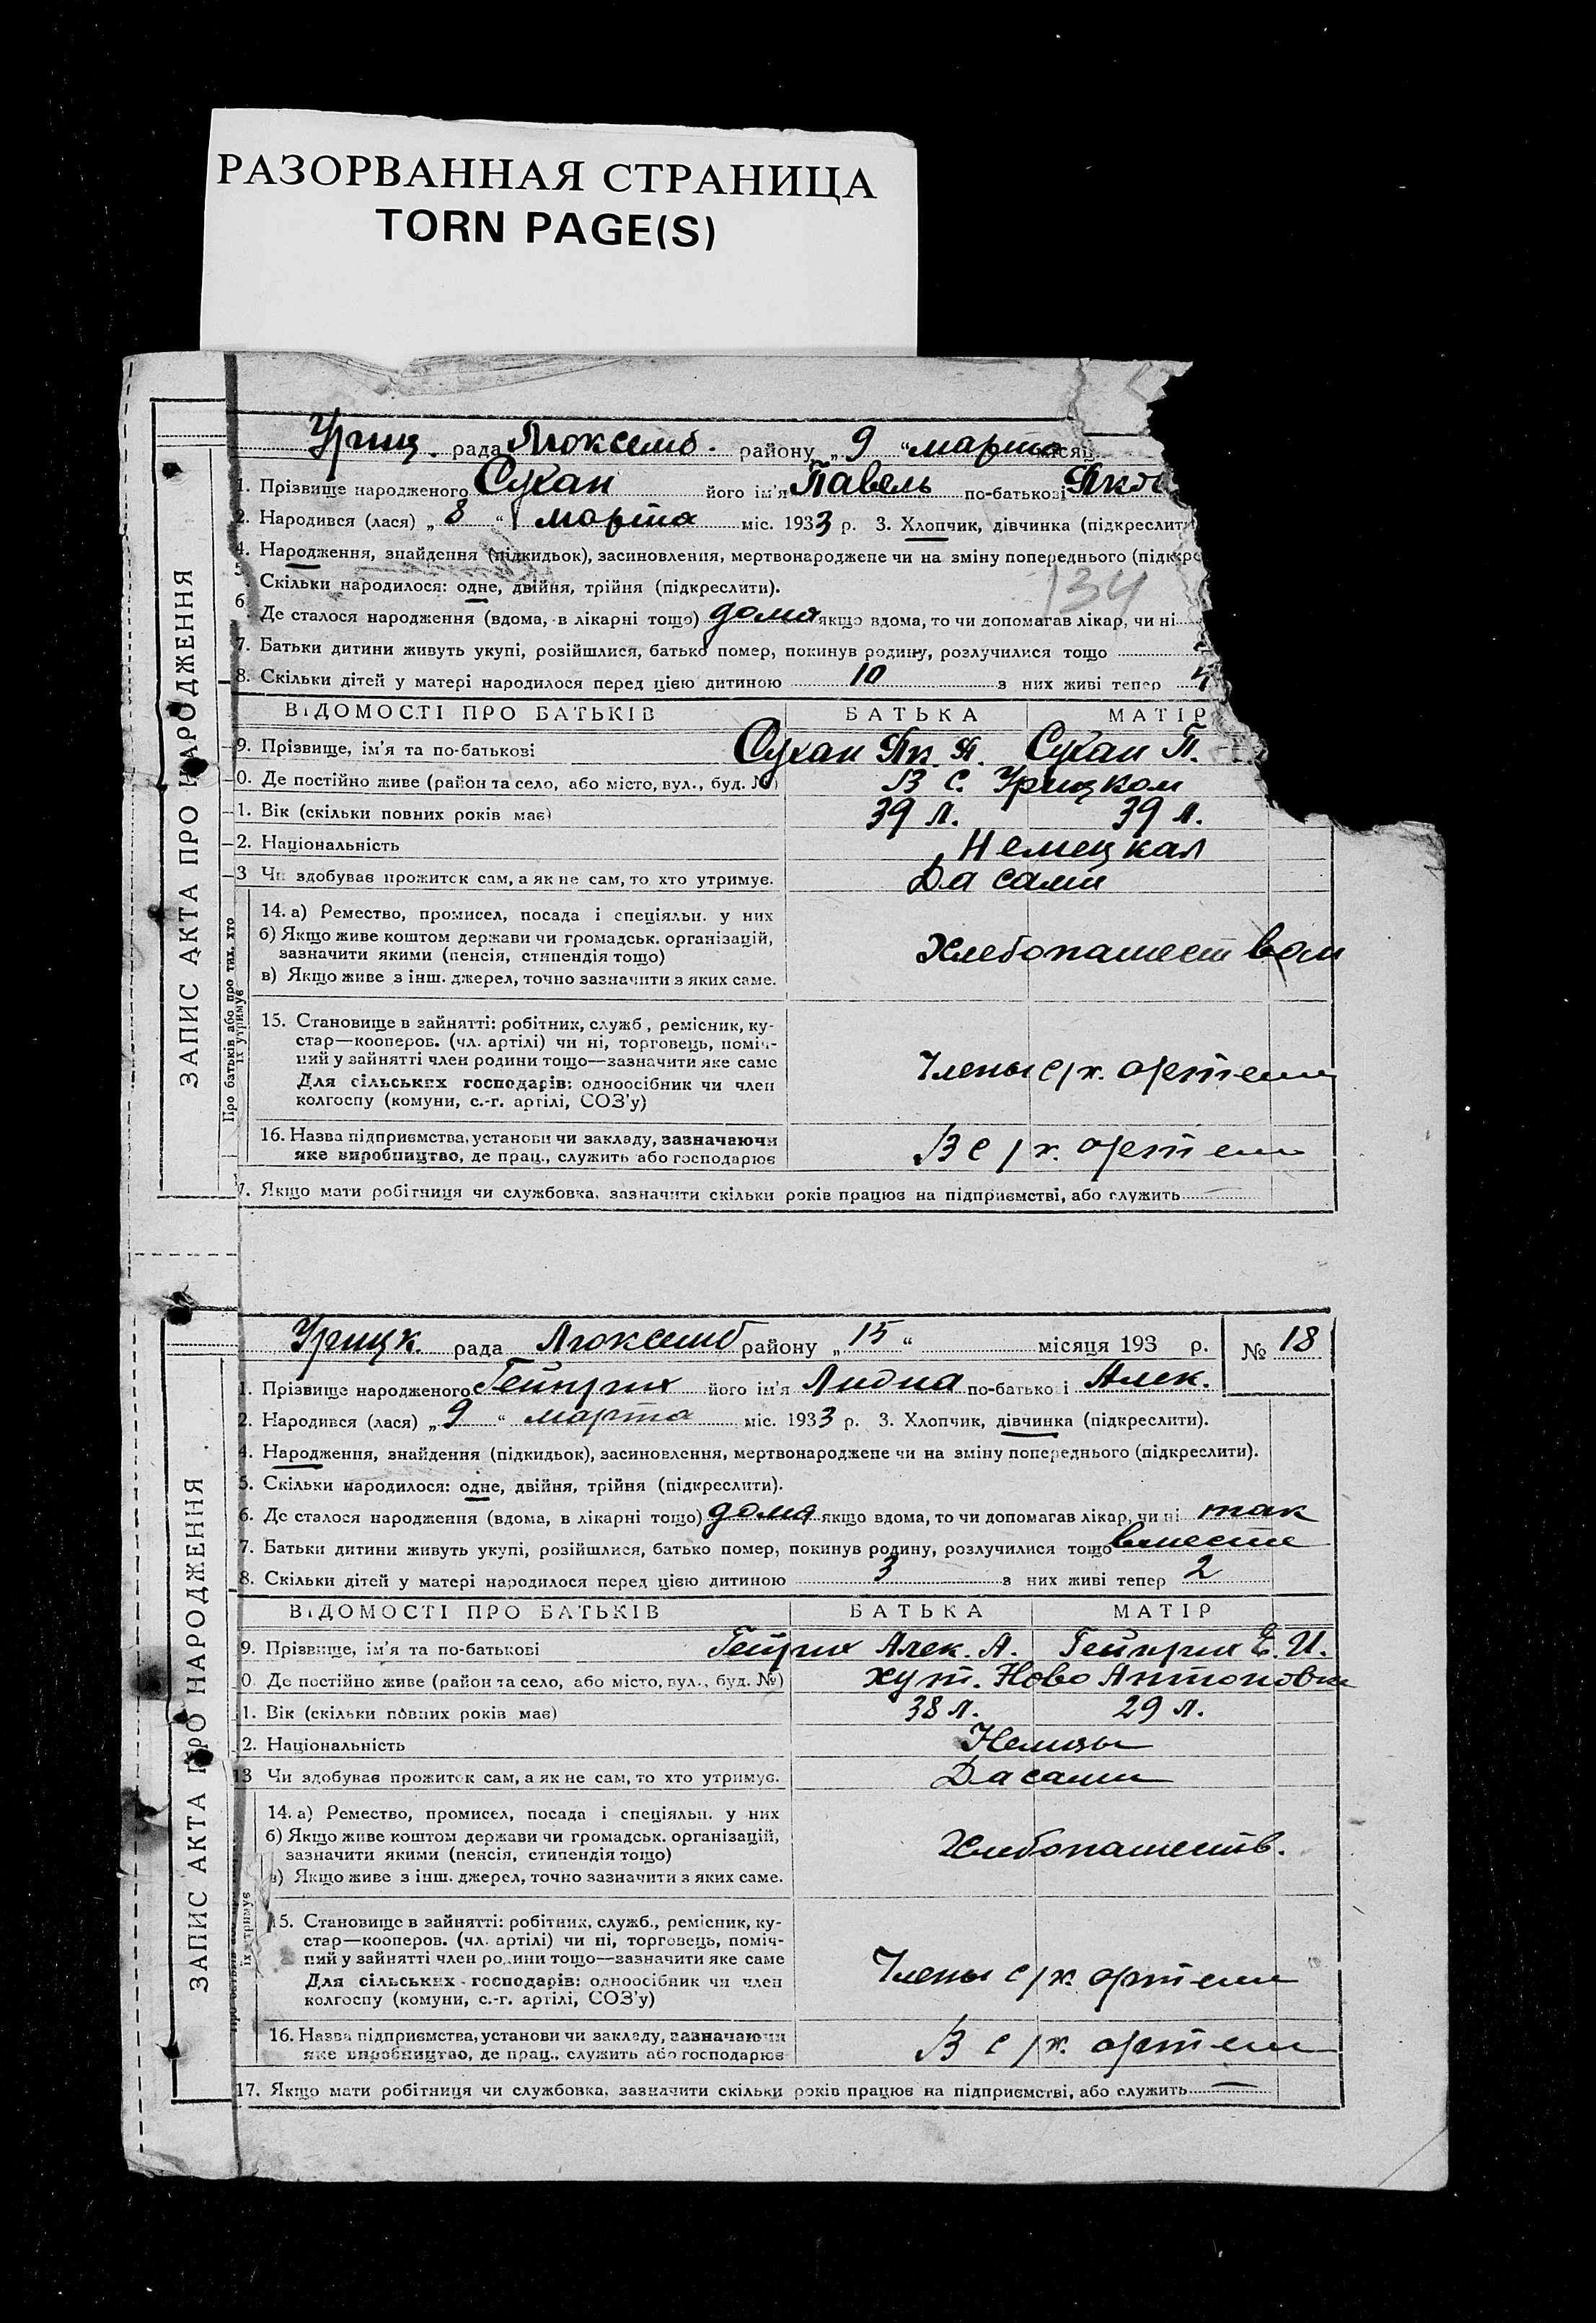 РАЗОРВАННАЯ СТРАНИЦА
TORN PAGE(S)
ЗАПИС АКТА ПРО НАРОДЖЕННЯ
Про батьків або про тих, хто їх утримує
Уриц. рада Люксемб. району „ 9 “ марта місяц
1. Прізвище народженого Сухан його ім'я Павель по-батькові
2. Народився (лася) „ 8 “ марта міс. 1933 р. 3. Хлопчик, дівчинка (підкреслит
4. Народження, знайдення (підкидьок), засиновлення, мертвонароджене чи на зміну попереднього (підкре
Скільки народилося: одне, двійня, трійня (підкреслити).
134
6. Де сталося народження (вдома, в лікарні тощо) дома якщо вдома, то чи допомагав лікар, чи ні
7. Батьки дитини живуть укупі, розійшлися, батько помер, покинув родину, розлучилися тощо
8. Скільки дітей у матері народилося перед цією дитиною 10 з них живі тепер
ВІДОМОСТІ ПРО БАТЬКІВ БАТЬКА МАТІР
9. Прізвище, ім'я та по-батькові Сухан Як. Я. Сухан П.
0. Де постійно живе (район та село, або місто, вул., буд. №) В с. Урицком
1. Вік (скільки повних років має) 39 л. 39 л.
2. Національність Немецкая
3 Чи здобуває прожиток сам, а як не сам, то хто утримує. Да сами
14. а) Ремество, промисел, посада і спеціяльн. у них
б) Якщо живе коштом держави чи громадськ. організацій,
зазначити якими (пенсія, стипендія тощо) Хлебопашеством
в) Якщо живе з інш. джерел, точно зазначити з яких саме.
15. Становище в зайнятті: робітник, служб., ремісник, ку-
стар—коопероб. (чл. артілі) чи ні, торговець, поміч-
ний у зайнятті член родини тощо—зазначити яке саме
Для сільських господарів: одноосібник чи член Члены с/х. артели
колгоспу (комуни, с.-г. артілі, СОЗ'у)
16. Назва підприємства, установи чи закладу, зазначаючи
яке виробництво, де прац., служить або господарює В с/х. артели
7. Якщо мати робітниця чи службовка, зазначити скільки років працює на підприємстві, або служить —
ЗАПИС АКТА ПРО НАРОДЖЕННЯ
їх утримує
Урицк. рада Люксемб району „ 15 “ місяця 193 р. № 18
1. Прізвище народженого Гейнрих його ім'я Лидиа по-батькові Алек.
2. Народився (лася) „ 9 “ марта міс. 1933 р. 3. Хлопчик, дівчинка (підкреслити).
4. Народження, знайдення (підкидьок), засиновлення, мертвонароджене чи на зміну попереднього (підкреслити).
5. Скільки народилося: одне, двійня, трійня (підкреслити).
6. Де сталося народження (вдома, в лікарні тощо) дома якщо вдома, то чи допомагав лікар, чи ні так
7. Батьки дитини живуть укупі, розійшлися, батько помер, покинув родину, розлучилися тощо вместе
8. Скільки дітей у матері народилося перед цією дитиною 3 з них живі тепер 2
ВІДОМОСТІ ПРО БАТЬКІВ БАТЬКА МАТІР
9. Прізвище, ім'я та по-батькові Гейрих Алек. А. Гейнрих Е. И.
0. Де постійно живе (район та село, або місто, вул., буд. №) хут. Ново Антоновка
1. Вік (скільки повних років має) 38 л. 29 л.
2. Національність Немцы
13 Чи здобуває прожиток сам, а як не сам, то хто утримує. Да сами
14. а) Ремество, промисел, посада і спеціяльн. у них
б) Якщо живе коштом держави чи громадськ. організацій,
зазначити якими (пенсія, стипендія тощо) Хлебопашеств.
в) Якщо живе з інш. джерел, точно зазначити з яких саме.
15. Становище в зайнятті: робітник, служб., ремісник, ку-
стар—кооперов. (чл. артілі) чи ні, торговець, поміч-
ний у зайнятті член родини тощо—зазначити яке саме
Для сільських господарів: одноосібник чи член Члены с/х. артели
колгоспу (комуни, с.-г. артілі, СОЗ'у)
16. Назва підприємства, установи чи закладу, зазначаючи
яке виробництво, де прац., служить або господарює В с/х. артели
17. Якщо мати робітниця чи службовка, зазначити скільки років працює на підприємстві, або служить —